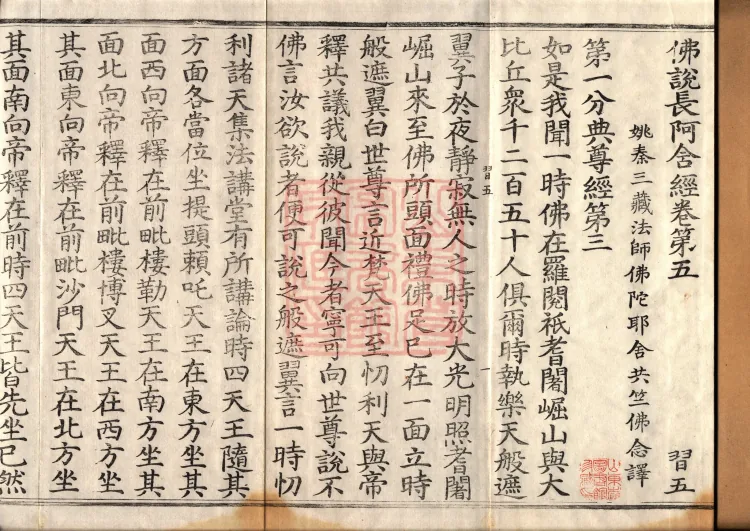 佛說長阿含經卷第五 習五
姚秦三藏法師佛陀耶舍共竺佛念譯
第一分典尊經第三
如是我聞一時佛在羅閱祇耆闍崛山與大
比丘眾千二百五十人俱爾時執樂天般遮
習五
翼子於夜靜寂無人之時放大光明照耆闍
崛山來至佛所頭面禮佛足已在一面立時
般遮翼白世尊言近梵天王至忉利天與帝
釋共議我親從彼聞今者寧可向世尊說不
佛言汝欲說者便可說之般遮翼言一時忉
利諸天集法講堂有所講論時四天王隨其
方面各當位坐提頭賴吒天王在東方坐其
面西向帝釋在前毗樓勒天王在南方坐其
面北向帝釋在前毗樓博叉天王在西方坐
其面東向帝釋在前毗沙門天王在北方坐
其面南向帝釋在前時四天王皆先坐已然